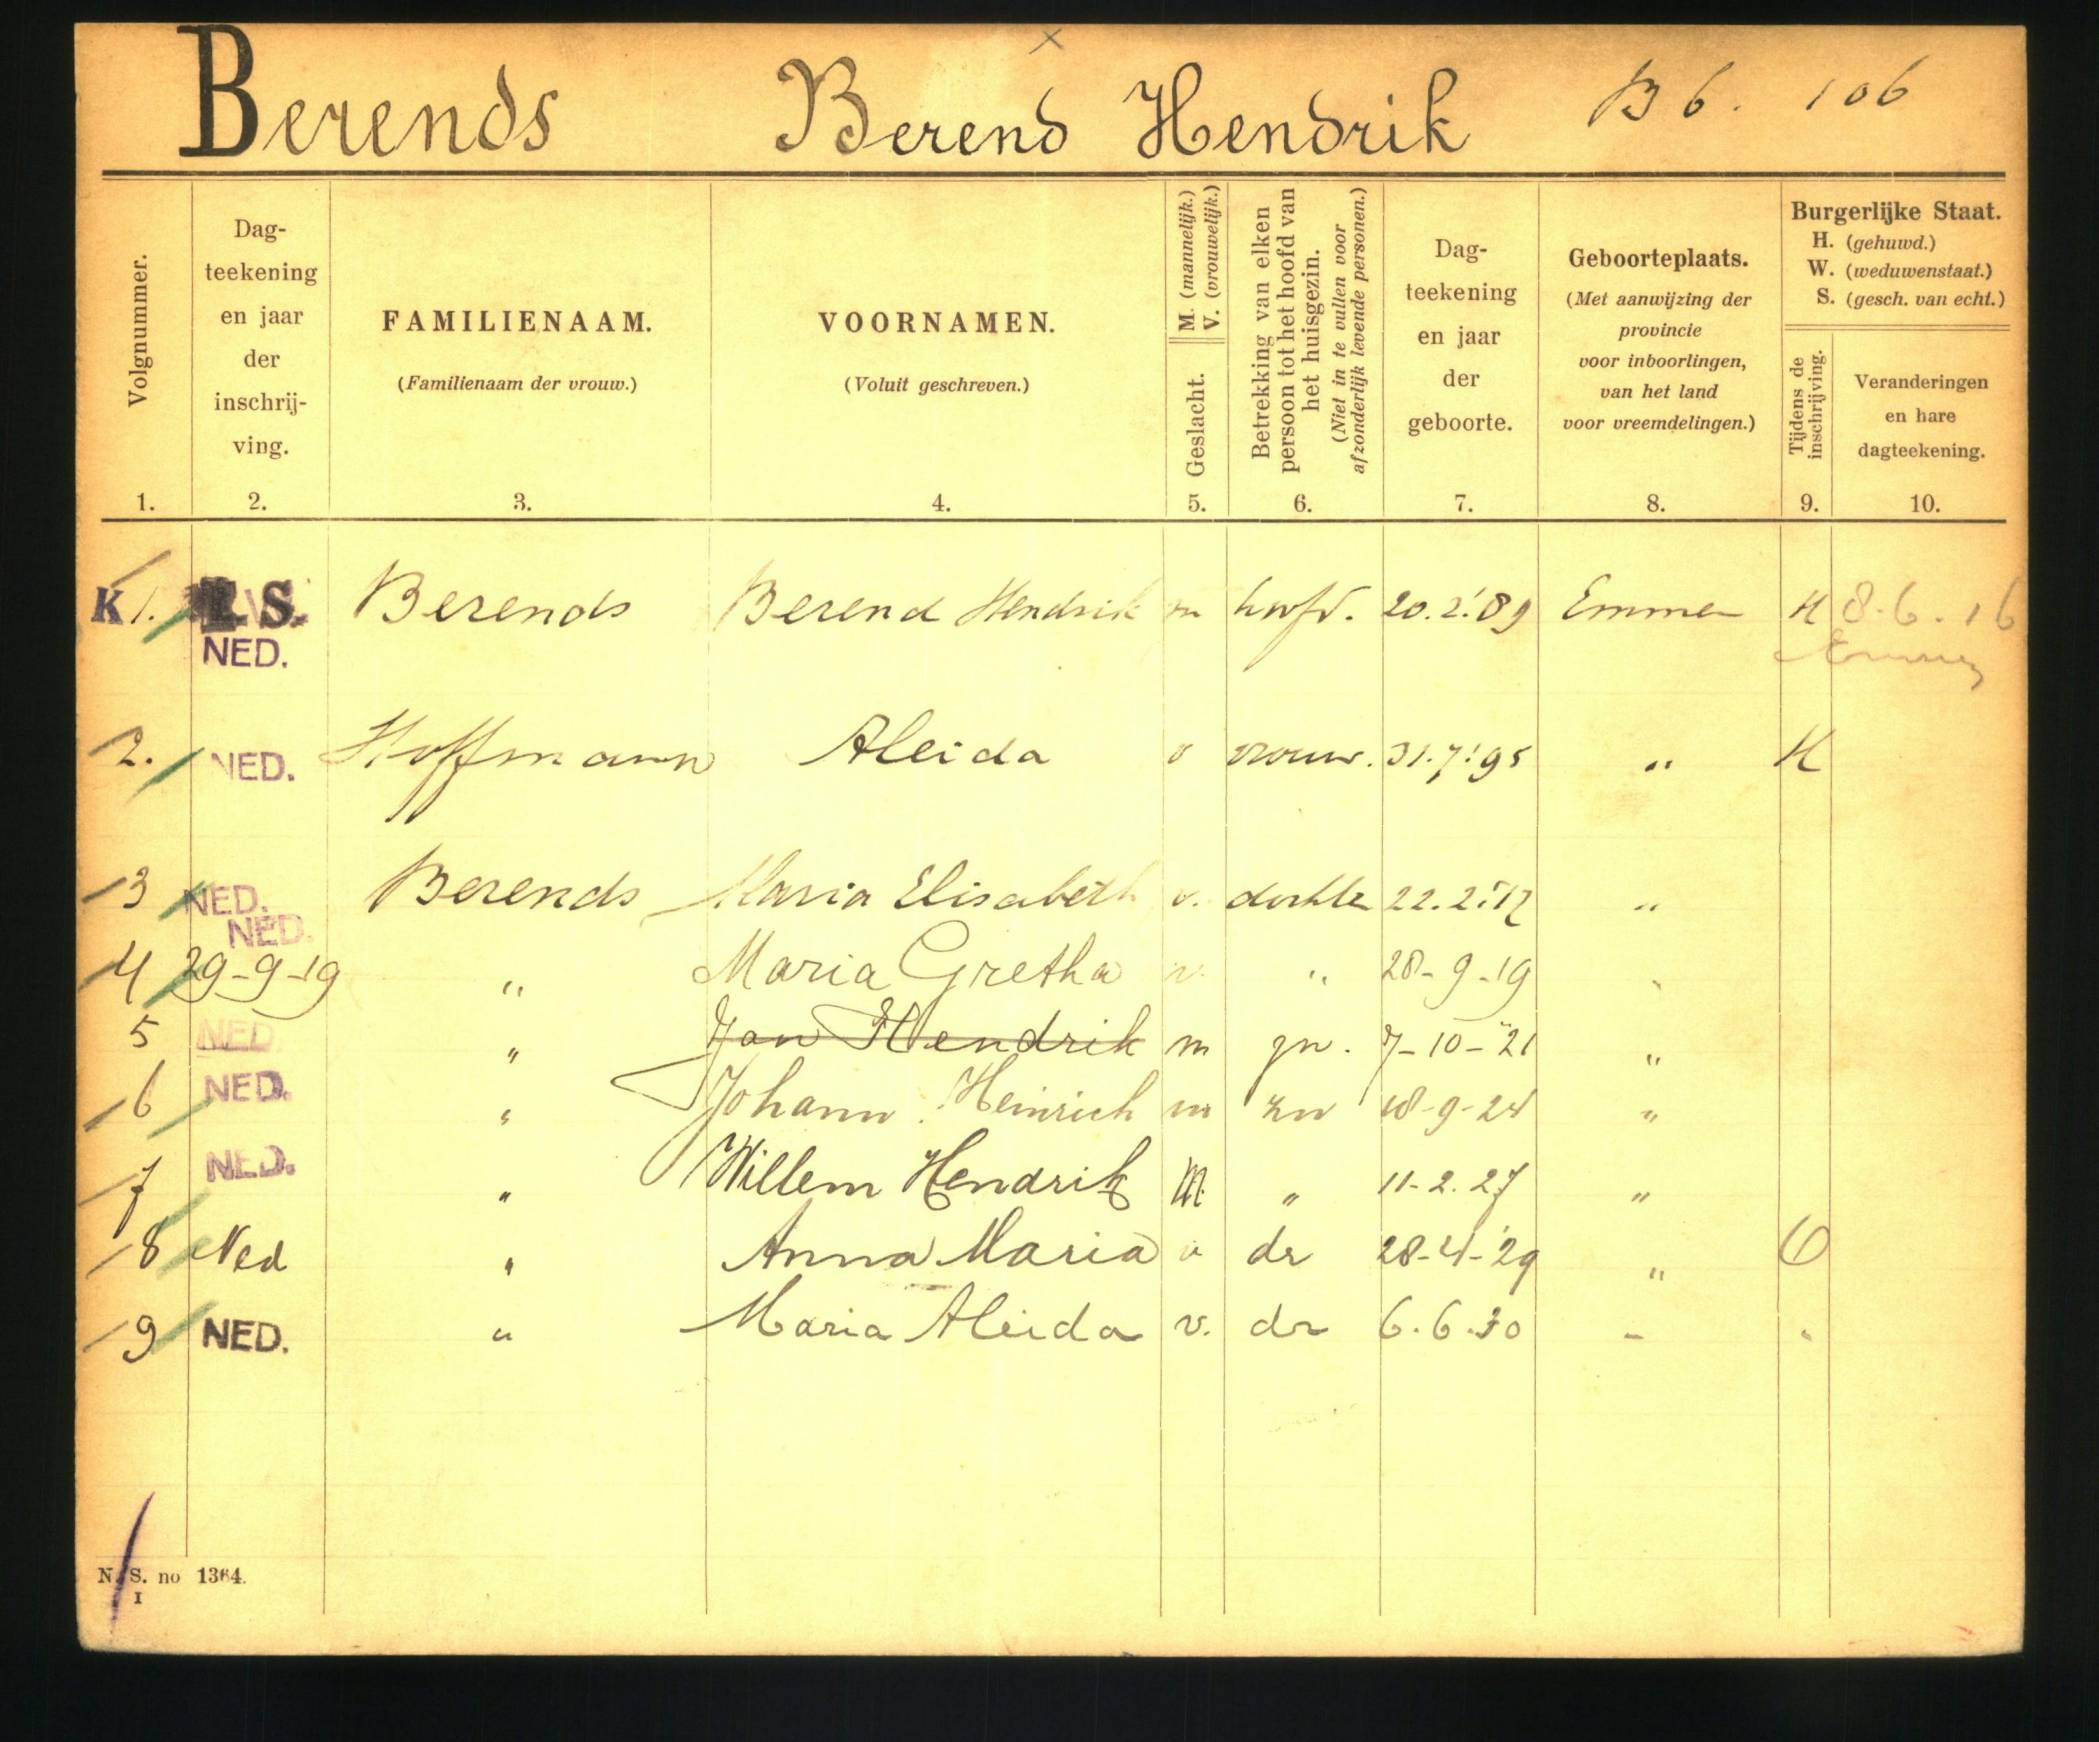 Berends Berend Hendrik B 6. 106
Volgnummer.
Dag-
teekening
en jaar
der
inschrij-
ving.
FAMILIENAAM.
(Familienaam der vrouw.)
VOORNAMEN.
(Voluit geschreven.)
M. (mannelijk.)
V. (vrouwelijk.)
Geslacht.
Betrekking van elken
persoon tot het hoofd van
het huisgezin.
(Niet in te vullen voor
afzonderlijk levende personen.)
Dag-
teekening
en jaar
der
geboorte.
Geboorteplaats.
(Met aanwijzing der
provincie
voor inboorlingen,
van het land
voor vreemdelingen.)
Burgerlijke Staat.
H. (gehuwd.)
W. (weduwenstaat.)
S. (gesch. van echt.)
Tijdens de
inschrijving.
Veranderingen
en hare
dagteekening.
1. 2. 3. 4. 5. 6. 7. 8. 9. 10.
K 1. S. Berends Berend Hendrik m hoofd. 20.2.'89 Emmen H 8.6.16
NED. Emmen
2. NED. Hoffmann Aleida v vrouw. 31.7.'95 " H
3 NED. Berends Maria Elisabeth v. dochter 22.2.'17 "
NED.
4 29-9-19 " Maria Gretha v. " 28-9-19 "
5 NED " Jan Hendrik m zn. 7-10-'21 "
6 NED. " Johann Heinrich m zn 18-9-24 "
7 NED. " Willem Hendrik M. " 11-2.27 "
8 Ned " Anna Maria v dr 28-4-'29 " O
9 NED. " Maria Aleida v. dr 6.6.30 "
N. S. no 1364.
I